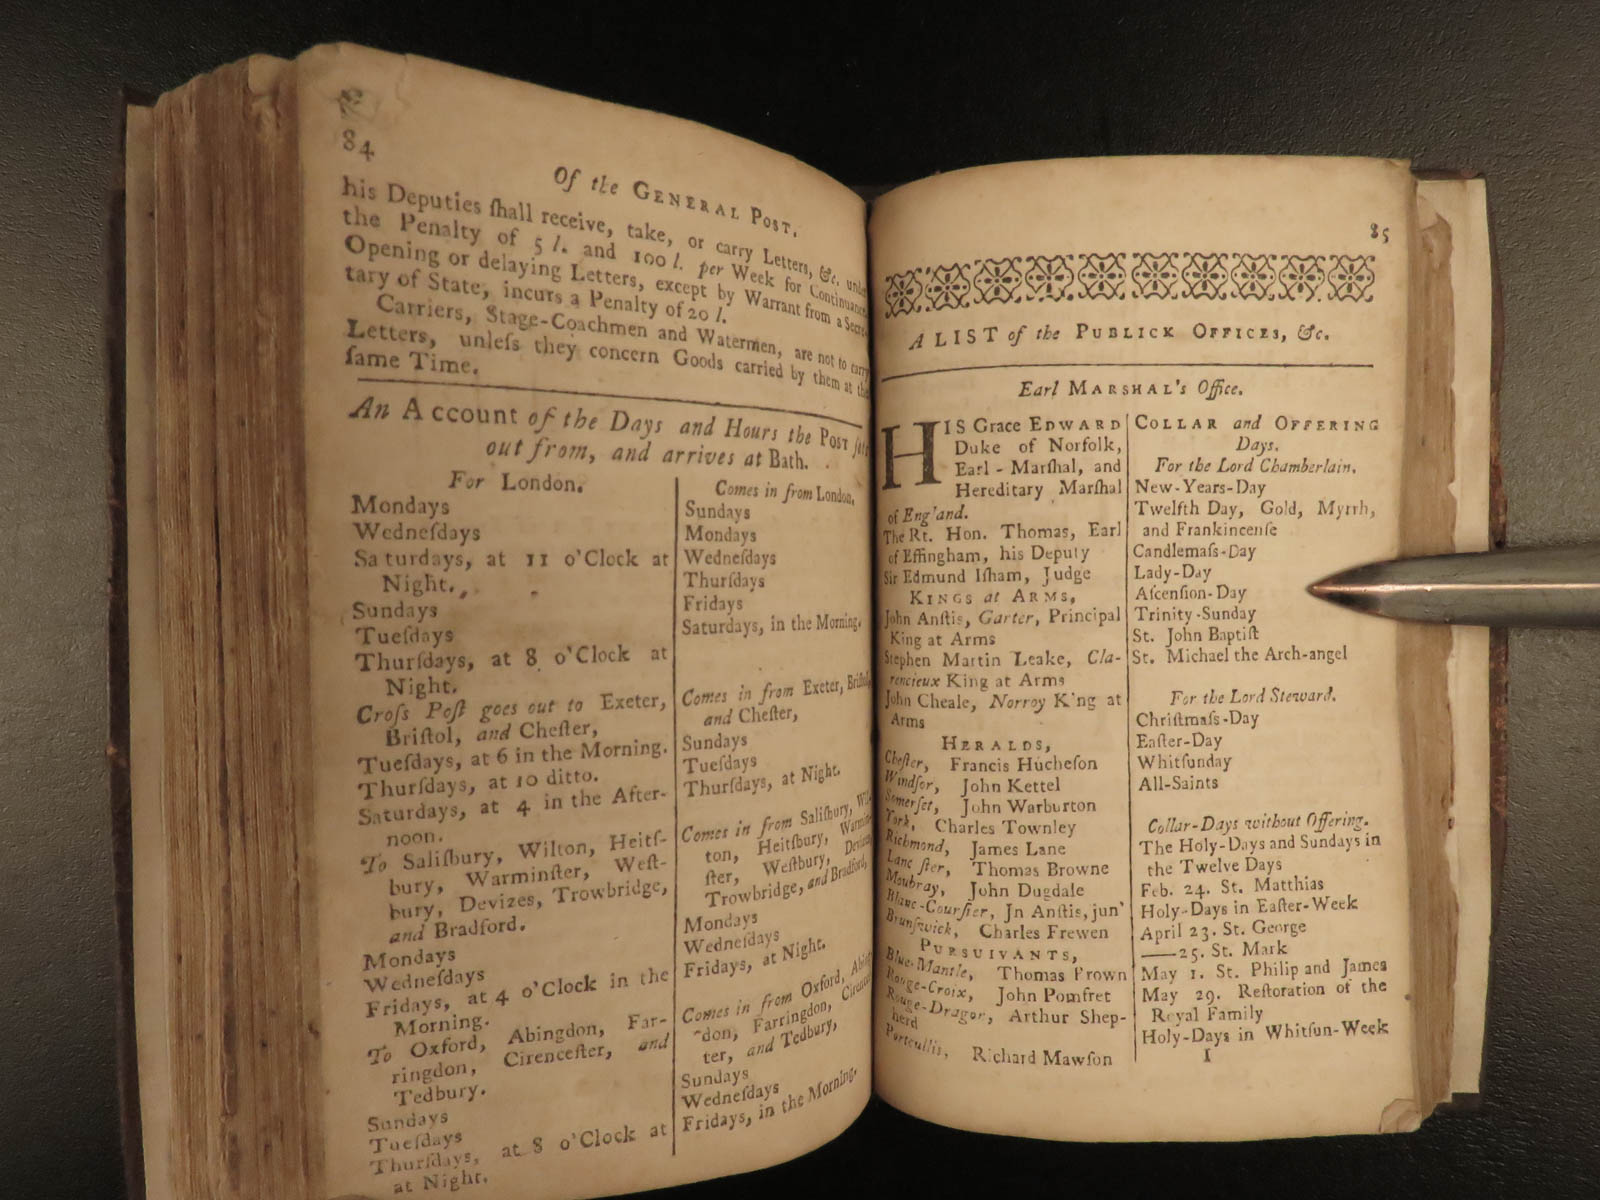 84
Of the GENERAL POST.
his Deputies ſhall receive, take, or carry Letters, &c. under
the Penalty of 5 l. and 100 l. per Week for Continuance.
Opening or delaying Letters, except by Warrant from a Secre-
tary of State, incurs a Penalty of 20 l.
Carriers, Stage-Coachmen and Watermen, are not to carry
Letters, unleſs they concern Goods carried by them at the
ſame Time.
An Account of the Days and Hours the POST ſets
out from, and arrives at Bath.
For London.
Mondays
Wedneſdays
Saturdays, at 11 o'Clock at
Night.
Sundays
Tueſdays
Thurſdays, at 8 o'Clock at
Night.
Croſs Poſt goes out to Exeter,
Briſtol, and Cheſter,
Tueſdays, at 6 in the Morning.
Thurſdays, at 10 ditto.
Saturdays, at 4 in the After-
noon.
To Saliſbury, Wilton, Heitſ-
bury, Warminſter, Weſt-
bury, Devizes, Trowbridge,
and Bradford.
Mondays
Wedneſdays
Fridays, at 4 o'Clock in the
Morning.
To Oxford, Abingdon, Far-
ringdon, Cirenceſter, and
Tedbury.
Sundays
Tueſdays
Thurſdays, at 8 o'Clock at
at Night.
Comes in from London.
Sundays
Mondays
Wedneſdays
Thurſdays
Fridays
Saturdays, in the Morning.
Comes in from Exeter, Briſtol,
and Cheſter,
Sundays
Tueſdays
Thurſdays, at Night.
Comes in from Saliſbury, Wil-
ton, Heitſbury, Warmin-
ſter, Weſtbury, Devizes,
Trowbridge, and Bradford,
Mondays
Wedneſdays
Fridays, at Night.
Comes in from Oxford, Abing-
don, Farringdon, Cirenceſ-
ter, and Tedbury,
Sundays
Wedneſdays
Fridays, in the Morning.
85
A LIST of the PUBLICK OFFICES, &c.
Earl MARSHAL's Office.
HIS Grace EDWARD
Duke of Norfolk,
Earl-Marſhal, and
Hereditary Marſhal
of England.
The Rt. Hon. Thomas, Earl
of Effingham, his Deputy
Sir Edmund Iſham, Judge
KINGS at ARMS,
John Anſtis, Garter, Principal
King at Arms
Stephen Martin Leake, Cla-
rencieux King at Arms
John Cheale, Norroy King at
Arms
HERALDS,
Cheſter, Francis Hucheſon
Windſor, John Kettel
Somerſet, John Warburton
York, Charles Townley
Richmond, James Lane
Lancaſter, Thomas Browne
Moubray, John Dugdale
Blanc-Courſier, Jn Anſtis, jun'
Brunſwick, Charles Frewen
PURSUIVANTS,
Blue-Mantle, Thomas Brown
Rouge-Croix, John Pomfret
Rouge-Dragon, Arthur Shep-
herd
Portcullis, Richard Mawſon
COLLAR and OFFERING
Days.
For the Lord Chamberlain.
New-Years-Day
Twelfth Day, Gold, Myrrh,
and Frankincenſe
Candlemaſs-Day
Lady-Day
Aſcenſion-Day
Trinity-Sunday
St. John Baptiſt
St. Michael the Arch-angel
For the Lord Steward.
Chriſtmaſs-Day
Eaſter-Day
Whitſunday
All-Saints
Collar-Days without Offering.
The Holy-Days and Sundays in
the Twelve Days
Feb. 24. St. Matthias
Holy-Days in Eaſter-Week
April 23. St. George
—25. St. Mark
May 1. St. Philip and James
May 29. Reſtoration of the
Royal Family
Holy-Days in Whitſun-Week
I